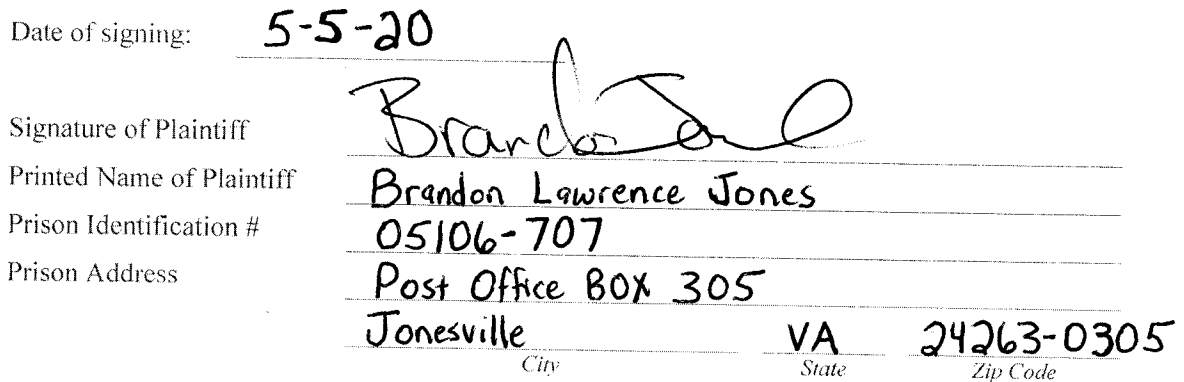 Date of signing: 5-5-20
Signature of Plaintiff Brandon Jones
Printed Name of Plaintiff Brandon Lawrence Jones
Prison Identification # 05106-707
Prison Address Post Office BOX 305
Jonesville VA 24263-0305
City State Zip Code